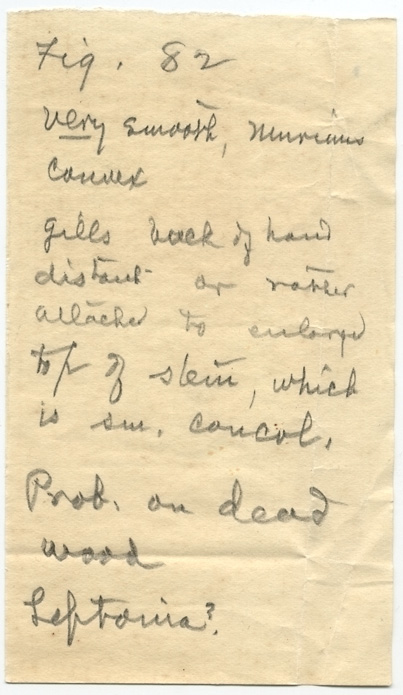 Fig. 82
very smooth,
convex
gills back of hand
distant or rather
attached to enlarged
top of stem, which
is sm. concol.
Prob. on dead
wood
Leptonia?